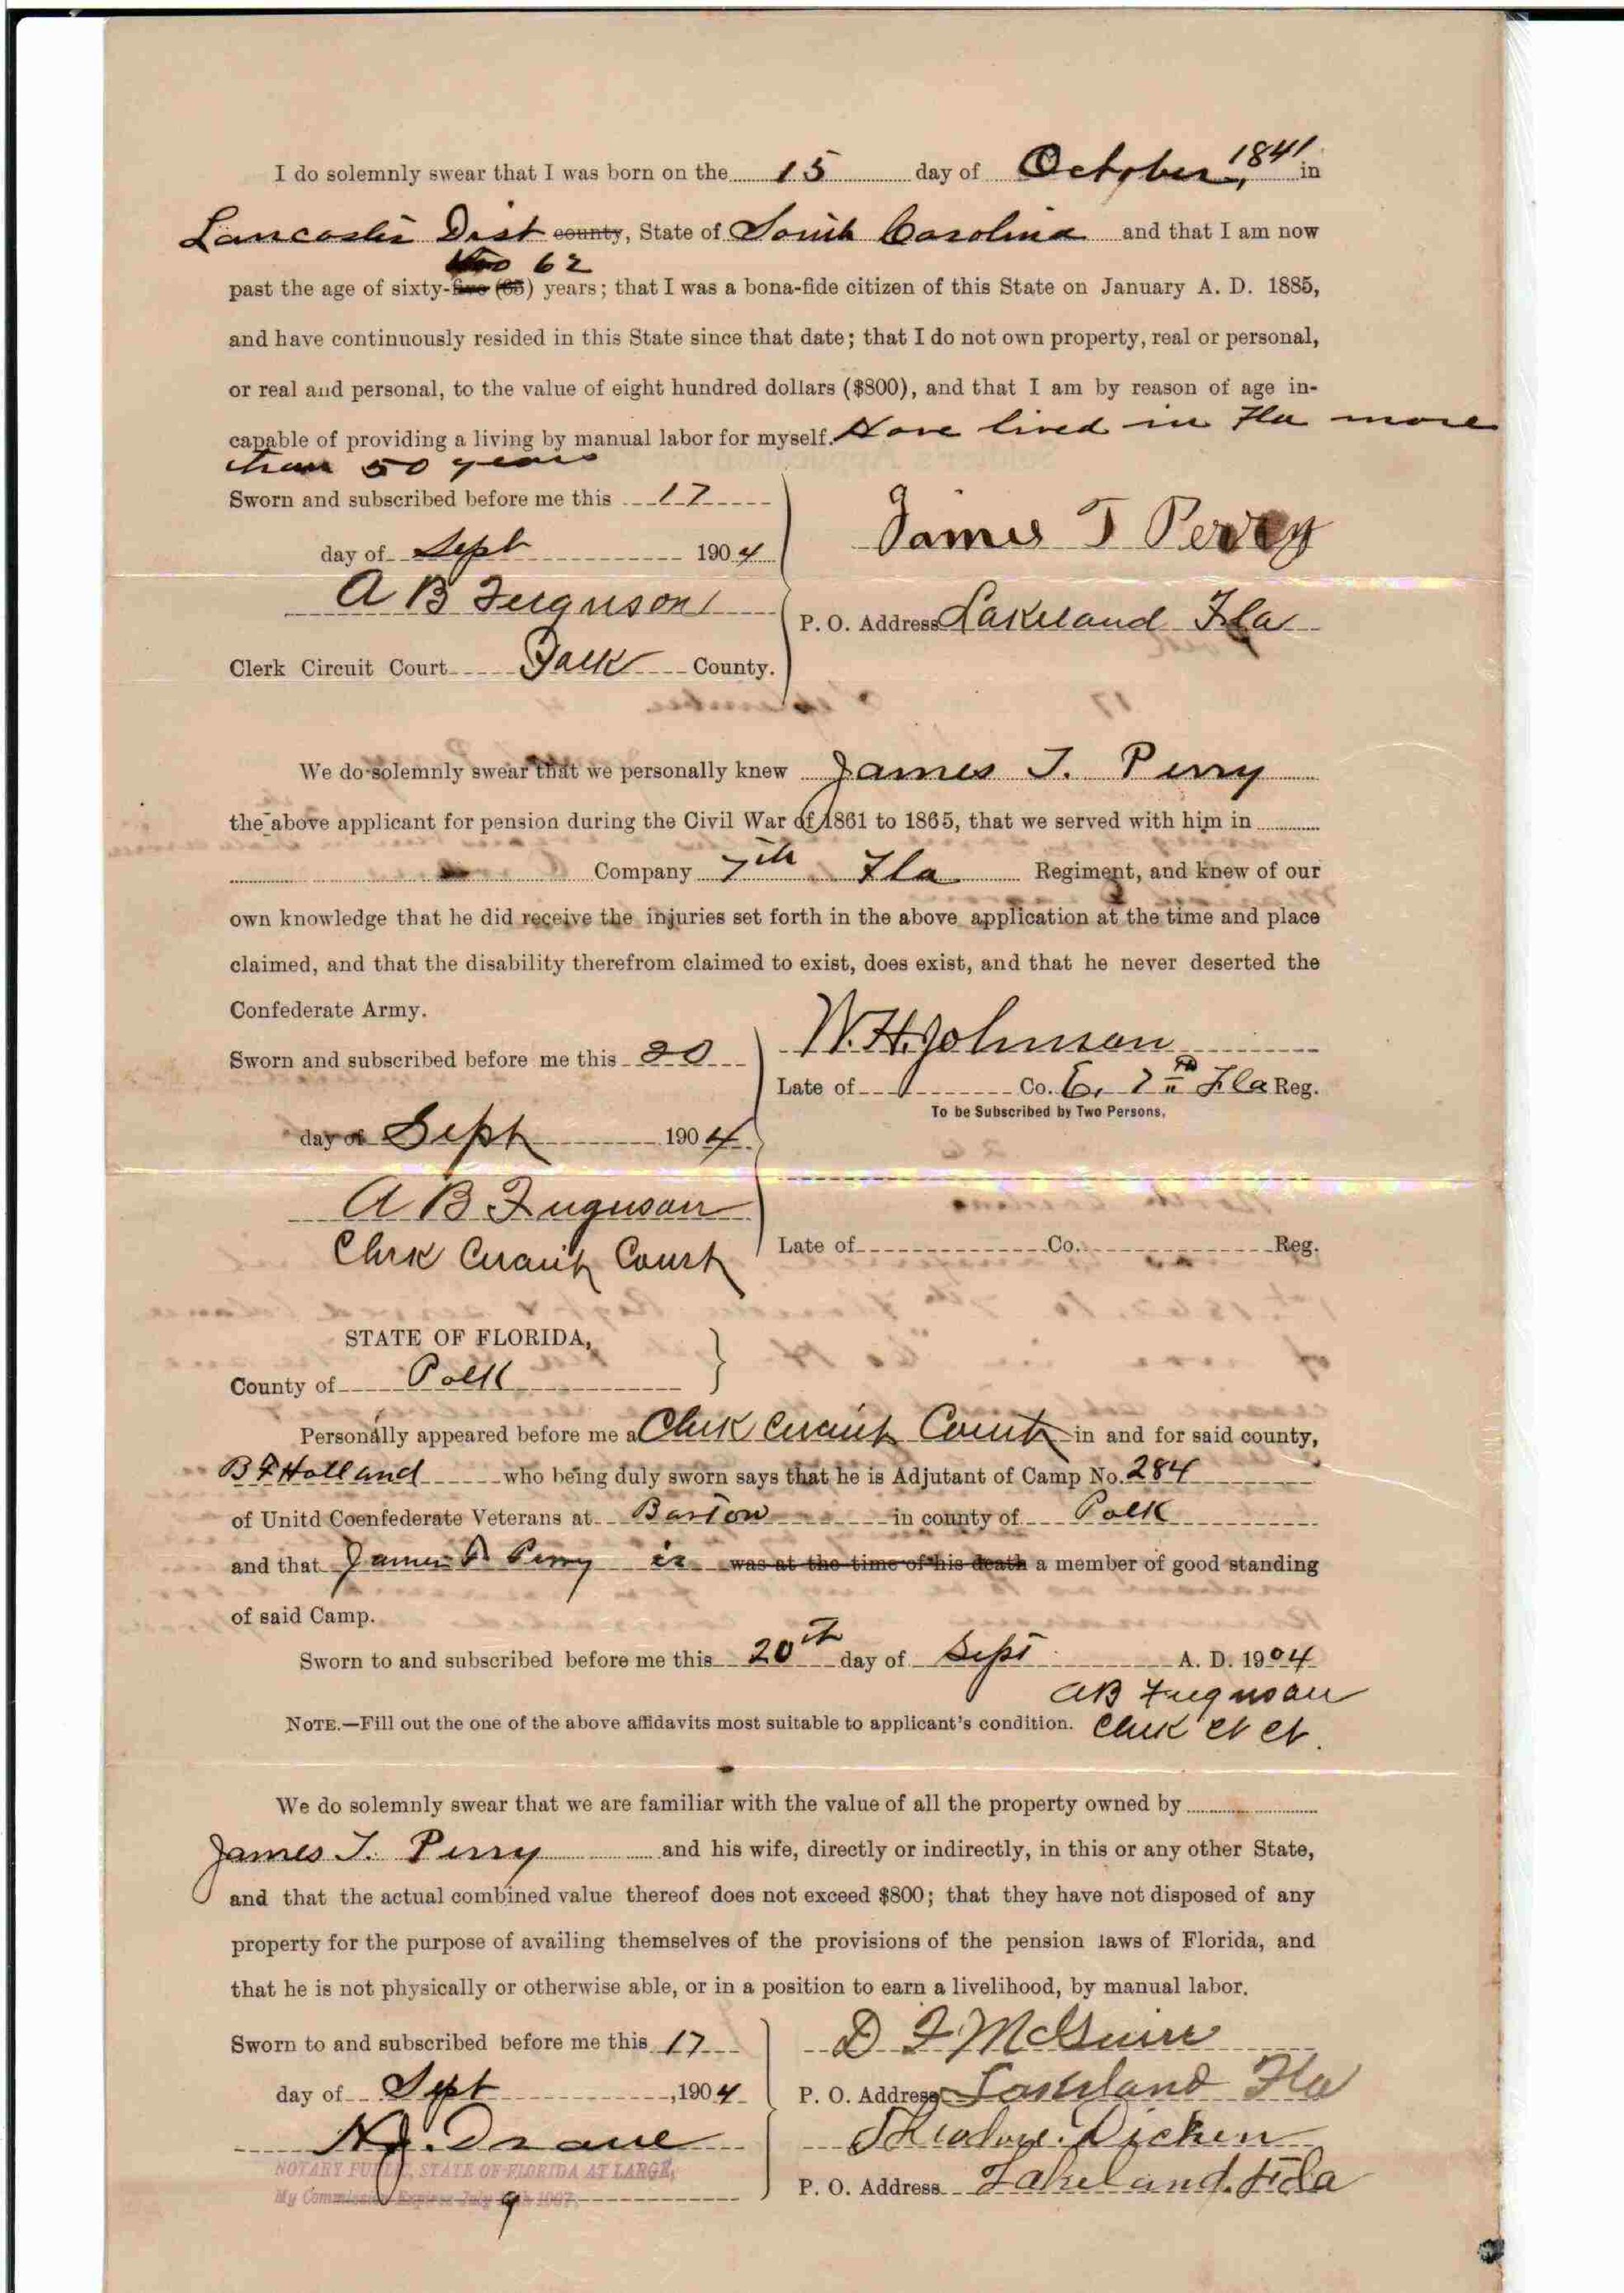 I do solemnly swear that I was born on the 15 day of October, 1841 in
Lancaster Dist county, State of South Carolina and that I am now
two 62
past the age of sixty-five (65) years; that I was a bona-fide citizen of this State on January A. D. 1885,
and have continuously resided in this State since that date; that I do not own property, real or personal,
or real and personal, to the value of eight hundred dollars ($800), and that I am by reason of age in-
capable of providing a living by manual labor for myself. Have lived in Fla more
than 50 years
Sworn and subscribed before me this 17
James T Perry
day of Sept 1904
A B Ferguson
P. O. Address Lakeland Fla
Clerk Circuit Court Polk County.
We do solemnly swear that we personally knew James T. Perry
the above applicant for pension during the Civil War of 1861 to 1865, that we served with him in
Company 7th Fla Regiment, and knew of our
own knowledge that he did receive the injuries set forth in the above application at the time and place
claimed, and that the disability therefrom claimed to exist, does exist, and that he never deserted the
Confederate Army.
W. H. Johnson
Sworn and subscribed before me this 20
Late of Co. E, 7th Fla Reg.
To be Subscribed by Two Persons.
day of Sept 1904
A B Ferguson
Clerk Circuit Court
Late of Co. Reg.
STATE OF FLORIDA,
County of Polk
Personally appeared before me a Clerk Circuit Court in and for said county,
B F Holland who being duly sworn says that he is Adjutant of Camp No. 284
of Unitd Coenfederate Veterans at Bartow in county of Polk
and that James T Perry is was at the time of his death a member of good standing
of said Camp.
Sworn to and subscribed before me this 20th day of Sept A. D. 1904
AB Ferguson
NOTE.—Fill out the one of the above affidavits most suitable to applicant's condition. Clerk Ct Ct.
We do solemnly swear that we are familiar with the value of all the property owned by
James T. Perry and his wife, directly or indirectly, in this or any other State,
and that the actual combined value thereof does not exceed $800; that they have not disposed of any
property for the purpose of availing themselves of the provisions of the pension laws of Florida, and
that he is not physically or otherwise able, or in a position to earn a livelihood, by manual labor.
D F McGuire
Sworn to and subscribed before me this 17
day of Sept, 1904
P. O. Address Lakeland Fla
H. J. Drane
Dicken
NOTARY PUBLIC, STATE OF FLORIDA AT LARGE,
My Commission Expires July 1907.
P. O. Address Lakeland. Fla